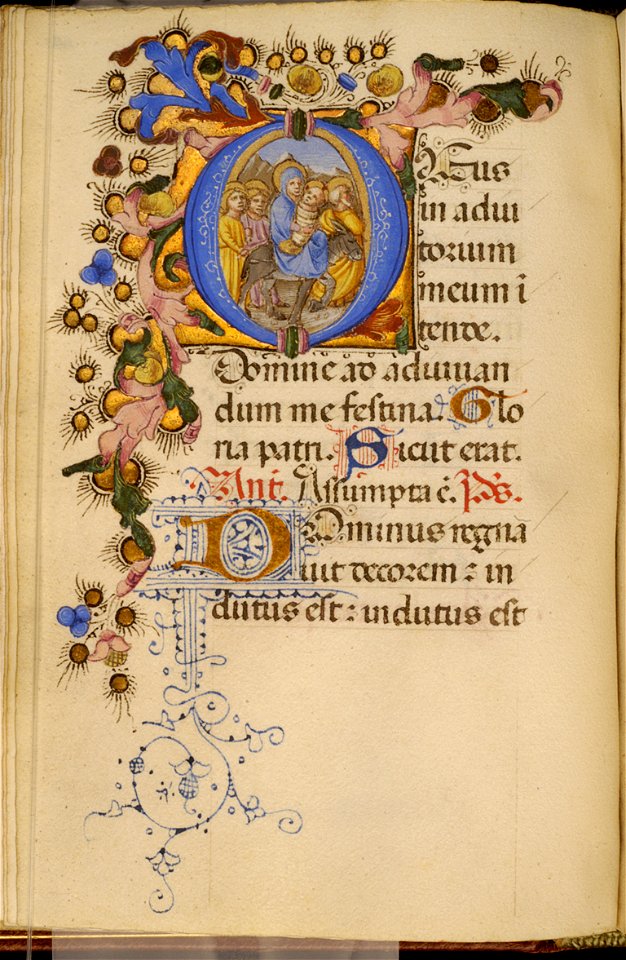 Deus
in adiu
torium
meum ī
tende.
Domine ad adiuuan
dum me festina. Glo
ria patri. Sicut erat.
Añt. Assumpta ē. Ps̄.
Dominus regna
uit decorem ⁊ in
dutus est ⁊ indutus est